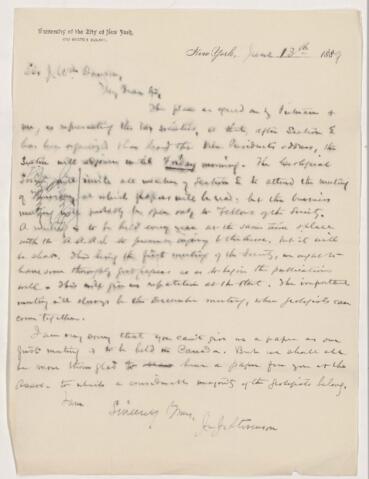 University of the City of New York,
New York, June 13th 1889
Sir J. Wm Dawson,
My Dear Sir,
The plan as agreed on by Putnam &
me, as representing the two societies, is that, after Section E
has been organized & has heard the Vice President's address, the
Section will adjourn until Friday morning. The Geological
Society will invite all members of Section E to attend the meeting
at which papers will be read; but the business
meeting will probably be open only to Fellows of the Society.
A meeting is to be held every year at the same time & place
with the A.A.A.S. but it will
be short. This being the first meeting of the Society, we ought to
have some thoroughly good papers so as to begin the publications
well. This will give us reputation at the start. The important
meeting will always be the December meeting, when geologists can
come together.
I am very sorry that you can't give us a paper as our
first meeting is to be held in Canada. But we shall all
be more than glad to hear a paper from you at the
Assoc. to which a considerable majority of the geologists belong.
I am
Sincerely Yours,
Jn. J. Stevenson